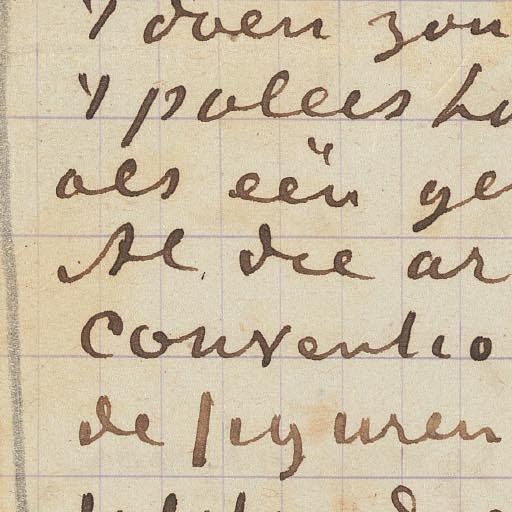 't doen zou
't paleis ho
als een ge
Al die ar
conventio
de figuren